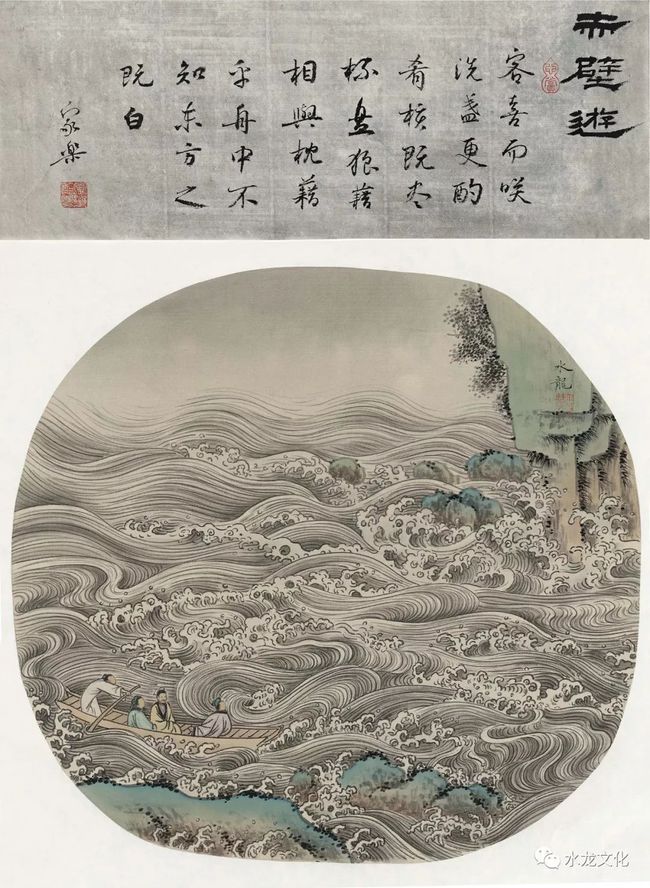 赤壁遊
客喜而咲
洗盞更酌
肴核既尽
杯盘狼藉
相與枕藉
乎舟中不
知东方之
既白
家樂
水龍
水龙文化